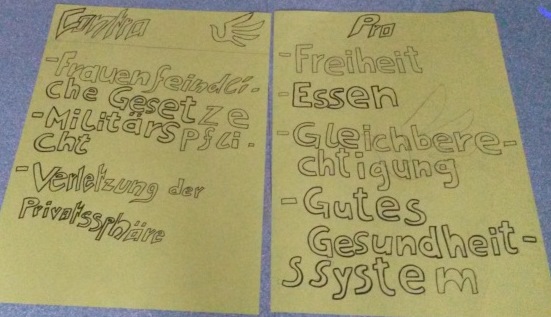 Contra
-Frauenfeindli-
che Gesetze
-Militärspfli-
cht
-Verletzung der
Privatssphäre
Pro
-Freiheit
-Essen
-Gleichbere-
chtigung
-Gutes
Gesundheit-
ssystem